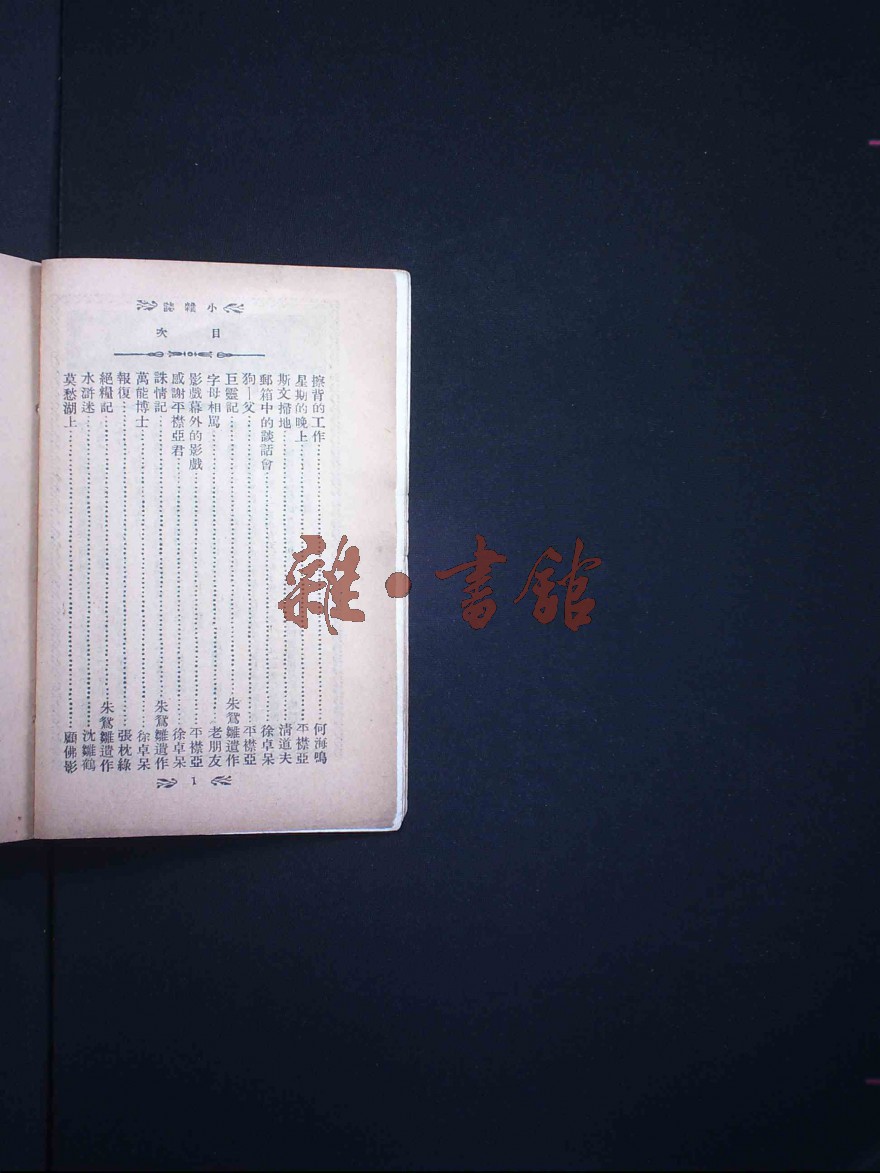 小雜誌
目次
擦背的工作……何海鳴
星期的晚上……平襟亞
斯文掃地……清道夫
郵箱中的談話會……徐卓呆
狗—父……平襟亞
巨靈記……朱鴛雛遺作
字母相罵……老朋友
影戲幕外的影戲……平襟亞
感謝平襟亞君……徐卓呆
誅情記……朱鴛雛遺作
萬能博士……徐卓呆
報復……張枕綠
絕糧記……朱鴛雛遺作
水滸迷……沈雛鶴
莫愁湖上……顧佛影
1
雜·書館